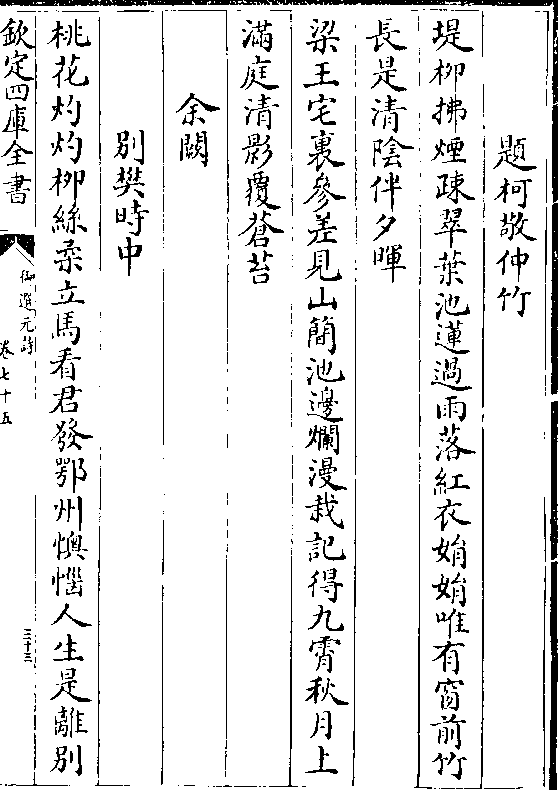 題柯敬仲竹
堤栁拂煙疎翠葉池蓮過雨落紅衣娟娟唯有窗前竹
長是清陰伴夕暉
梁王宅裏參差見山簡池邊爛漫栽記得九霄秋月上
滿庭清影覆蒼苔
余闕
別樊時中
桃花灼灼栁絲柔立馬看君發鄂州懊惱人生是離別
欽定四庫全書
御選元詩
卷七十五
三十三